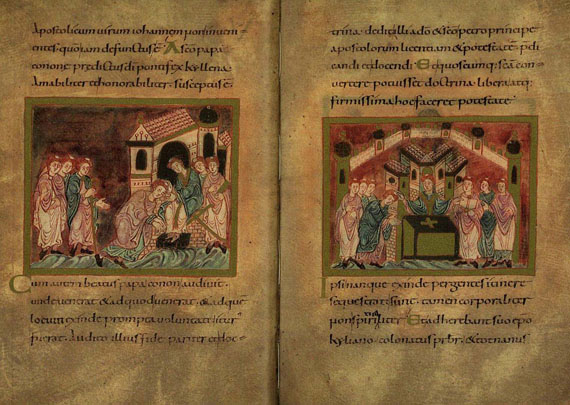 Apostolicum virum iohannem pontin uenientes
entes. quoram defunctus ē. A sco papa
conone predictus di pontifex kyllena
Amabiliter et honorabiliter susceptus ē
Cum autem beatus papa conon audiuit
unde uenerat & ad quod uenerat. & adque
locum exinde prompta uoluntate
fierat. Audito illius fide pariter et doc
trina. dedit illi a dō & sco petro principe
apostolorum licentiam & potestatē pdi
candi et docendi. Et quoscumq; con
uertere potuisset doctrina libera atq;
firmissima hoc faceret potestate
Ipsi namque exinde pergentes itinere
se que serarent sunt. tamen corporaliter
non spiritaliter. Et adherebant suo epo
kyliano. colonatus prbr. & totnanus